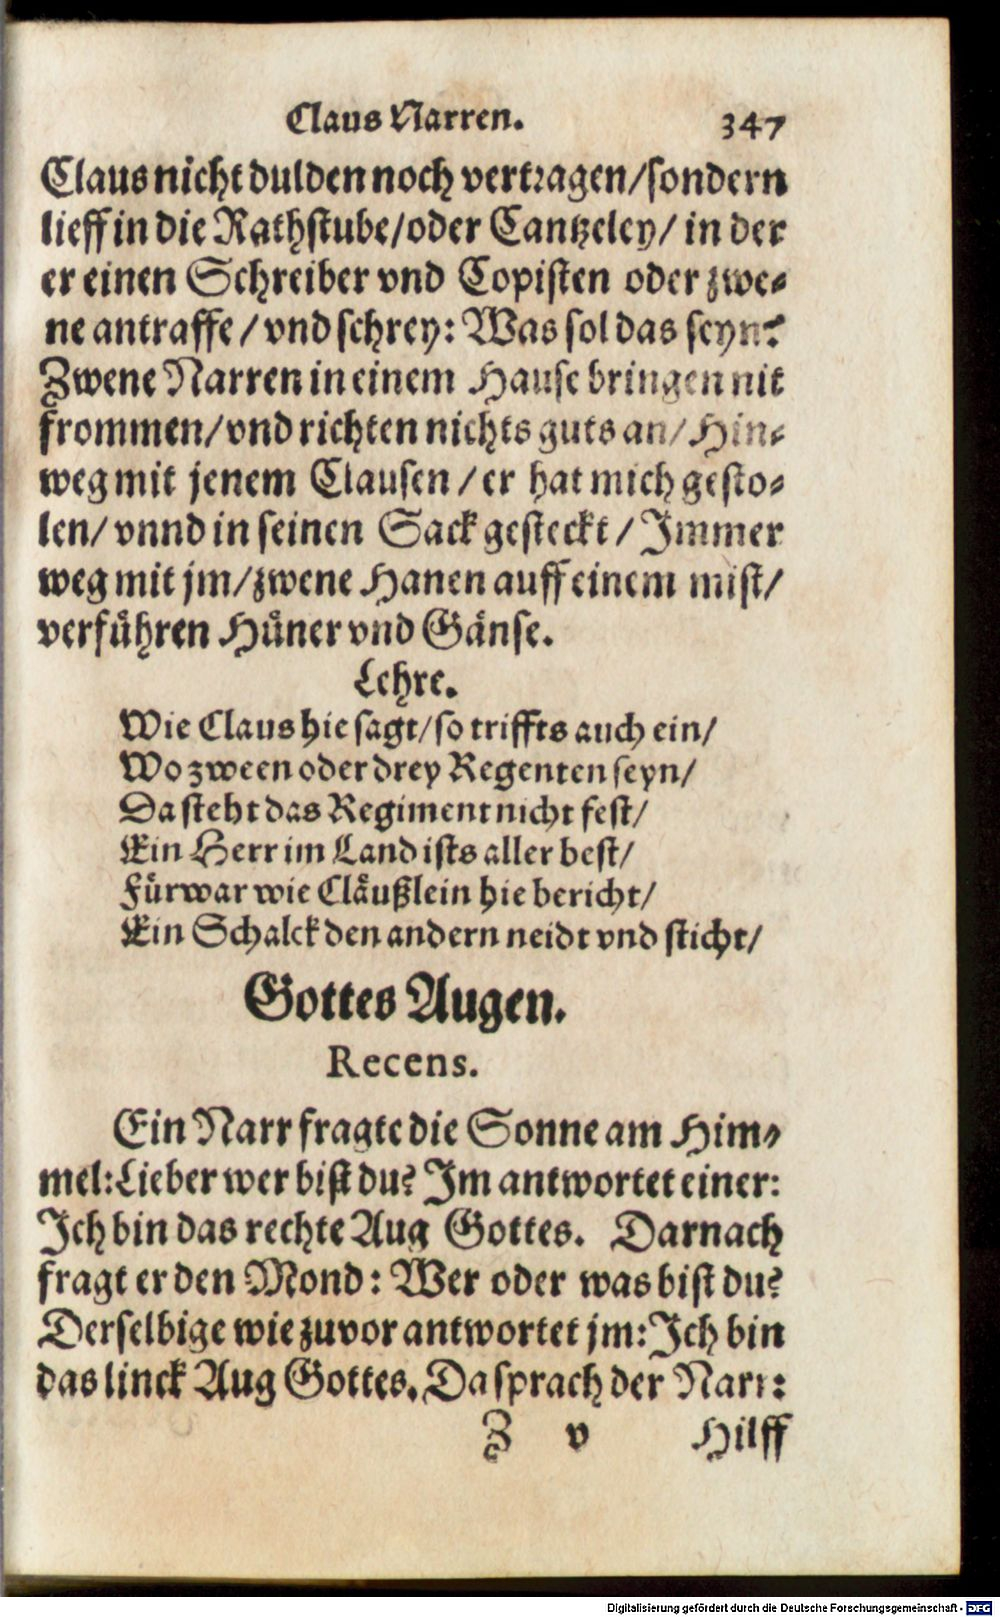 Claus Narren. 347
Claus nicht dulden noch vertragen/sondern
lieff in die Rathstube/oder Cantzeley/ in der
er einen Schreiber vnd Copisten oder zwe-
ne antraffe/vnd schrey: Was sol das seyn?
Zwene Narren in einem Hause bringen nit
frommen/vnd richten nichts guts an/Hin-
weg mit jenem Clausen/er hat mich gesto-
len/vnnd in seinen Sack gesteckt/Immer
weg mit jm/zwene Hanen auff einem mist/
verführen Hüner vnd Gänse.
Lehre.
Wie Claus hie sagt/so triffts auch ein/
Wo zween oder drey Regenten seyn/
Da steht das Regiment nicht fest/
Ein Herr im Land ists aller best/
Fürwar wie Cläußlein hie bericht/
Ein Schalck den andern neidt vnd sticht/
Gottes Augen.
Recens.
Ein Narr fragte die Sonne am Him-
mel: Lieber wer bist du? Im antwortet einer:
Ich bin das rechte Aug Gottes. Darnach
fragt er den Mond: Wer oder was bist du?
Derselbige wie zuvor antwortet jm: Ich bin
das linck Aug Gottes. Da sprach der Narr:
Z v Hilff
Digitalisierung gefördert durch die Deutsche Forschungsgemeinschaft - DFG